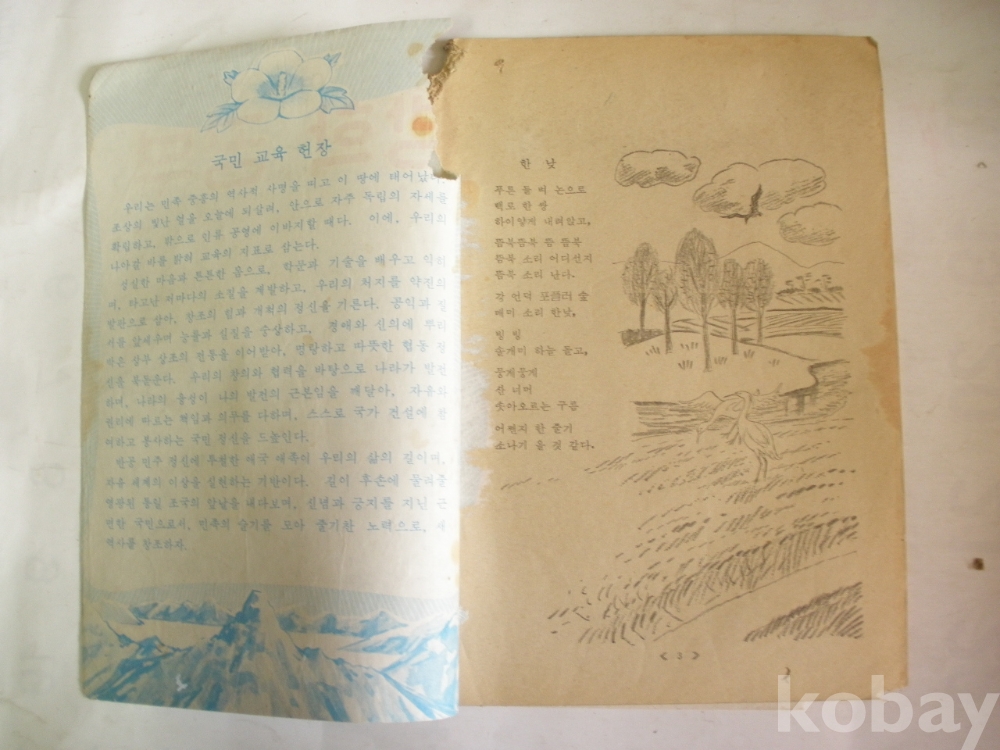 국민 교육 헌장
우리는 민족 중흥의 역사적 사명을 띠고 이 땅에 태어났다.
조상의 빛난 얼을 오늘에 되살려, 안으로 자주 독립의 자세를
확립하고, 밖으로 인류 공영에 이바지할 때다. 이에, 우리의
나아갈 바를 밝혀 교육의 지표로 삼는다.
성실한 마음과 튼튼한 몸으로, 학문과 기술을 배우고 익히
며, 타고난 저마다의 소질을 계발하고, 우리의 처지를 약진의
발판으로 삼아, 창조의 힘과 개척의 정신을 기른다. 공익과 질
서를 앞세우며 능률과 실질을 숭상하고, 경애와 신의에 뿌리
박은 상부 상조의 전통을 이어받아, 명랑하고 따뜻한 협동 정
신을 북돋운다. 우리의 창의와 협력을 바탕으로 나라가 발전
하며, 나라의 융성이 나의 발전의 근본임을 깨달아, 자유와
권리에 따르는 책임과 의무를 다하며, 스스로 국가 건설에 참
여하고 봉사하는 국민 정신을 드높인다.
반공 민주 정신에 투철한 애국 애족이 우리의 삶의 길이며,
자유 세계의 이상을 실현하는 기반이다. 길이 후손에 물려줄
영광된 통일 조국의 앞날을 내다보며, 신념과 긍지를 지닌 근
면한 국민으로서, 민족의 슬기를 모아 줄기찬 노력으로, 새
역사를 창조하자.
한 낮
푸른 들 벼 논으로
백로 한 쌍
하이얗게 내려앉고,
뜸북뜸북 뜸 뜸북
뜸북 소리 어디선지
뜸북 소리 난다.
언덕 포플러 숲
매미 소리 한낮,
빙 빙
솔개미 하늘 돌고,
뭉게뭉게
산 너머
솟아오르는 구름
어쩐지 한 줄기
소나기 올 것 같다.
kobay